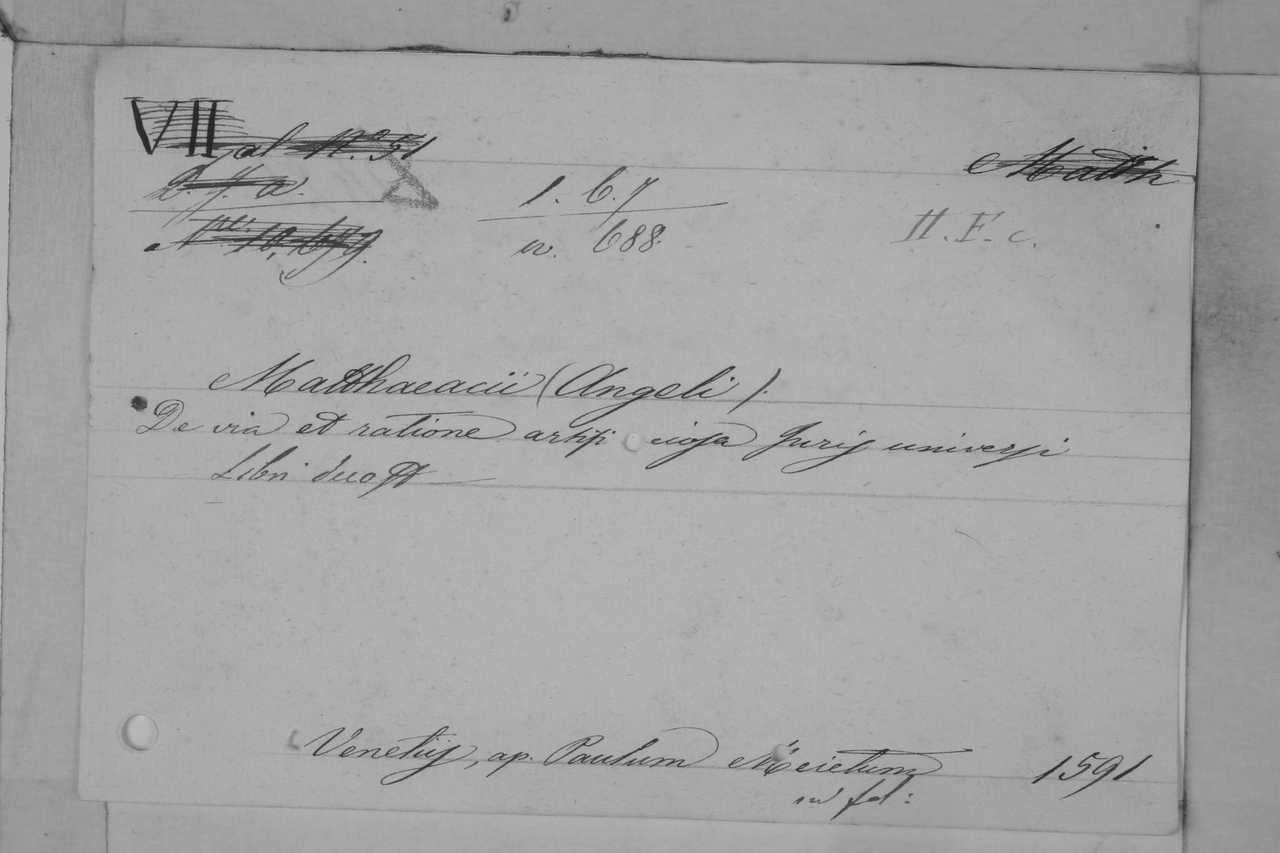 VII
al N.º 51
Matth
1. b. 7
II. F. c.
No. 10,659.
w. 688.
Matthaeacii (Angeli).
De via et ratione artifi ciosa Juris universi
Libri duo
Venetiis, ap. Paulum Meietum 1591
in fol: